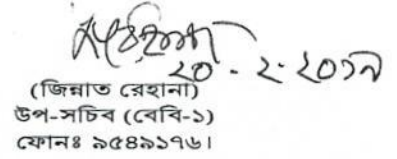 ২০-২-২০১৯
(জিন্নাত রেহানা)
উপ-সচিব (বেবি-১)
ফোনঃ ৯৫৪৯১৭৬।